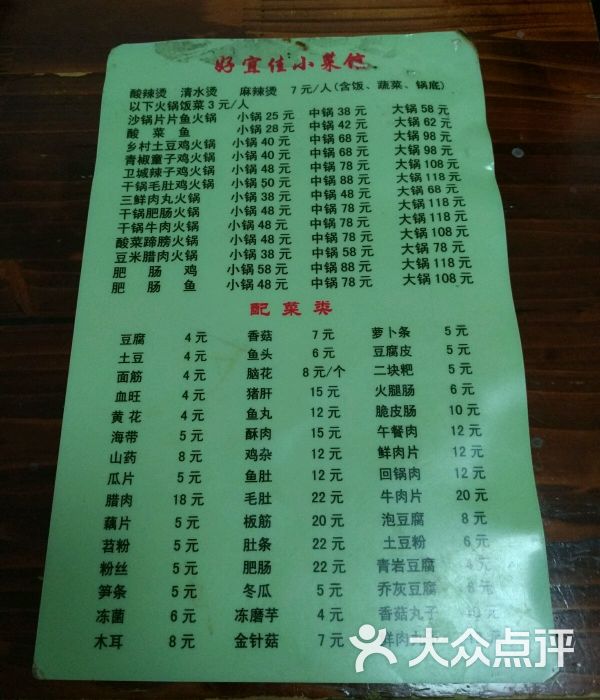 好宜佳小菜馆
酸辣烫 清水烫 麻辣烫 7元/人(含饭、蔬菜、锅底)
以下火锅饭菜3元/人
沙锅片片鱼火锅 小锅25元 中锅38元 大锅58元
酸菜鱼 小锅28元 中锅42元 大锅62元
乡村土豆鸡火锅 小锅40元 中锅68元 大锅98元
青椒童子鸡火锅 小锅40元 中锅68元 大锅98元
卫城辣子鸡火锅 小锅48元 中锅78元 大锅108元
干锅毛肚鸡火锅 小锅50元 中锅88元 大锅118元
三鲜肉丸火锅 小锅38元 中锅48元 大锅68元
干锅肥肠火锅 小锅48元 中锅78元 大锅118元
干锅牛肉火锅 小锅48元 中锅78元 大锅118元
酸菜蹄膀火锅 小锅48元 中锅78元 大锅108元
豆米腊肉火锅 小锅38元 中锅58元 大锅78元
肥肠鸡 小锅58元 中锅88元 大锅118元
肥肠鱼 小锅48元 中锅78元 大锅108元
配菜类
豆腐 4元 香菇 7元 萝卜条 5元
土豆 4元 鱼头 6元 豆腐皮 5元
面筋 4元 脑花 8元/个 二块粑 5元
血旺 4元 猪肝 15元 火腿肠 6元
黄花 4元 鱼丸 12元 脆皮肠 10元
海带 5元 酥肉 15元 午餐肉 12元
山药 8元 鸡杂 12元 鲜肉片 12元
瓜片 5元 鱼肚 12元 回锅肉 12元
腊肉 18元 毛肚 22元 牛肉片 20元
藕片 5元 板筋 20元 泡豆腐 8元
苕粉 5元 肚条 22元 土豆粉 6元
粉丝 5元 肥肠 22元 青岩豆腐 4元
笋条 5元 冬瓜 5元 乔灰豆腐 8元
冻菌 6元 冻磨芋 4元 香菇丸子 10元
木耳 8元 金针菇 7元 鲜肉
大众点评